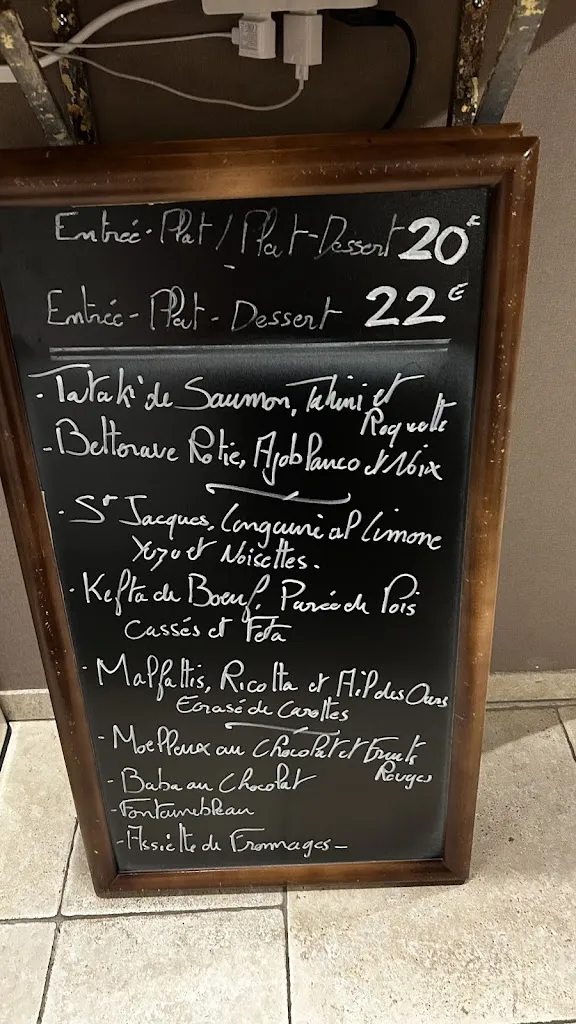 Entrée-Plat / Plat-Dessert 20€
Entrée-Plat-Dessert 22€
· Tataki de Saumon, Tahini et
Roquette
- Betterave Rotie, Ajoblanco et Noix
· St Jacques, Linguini al Limone
Yuzu et Noisettes.
· Kefta de Boeuf, Purée de Pois
Cassés et Feta
· Malfattis, Ricotta et Ail des Ours
Ecrasé de Carottes
- Moelleux au Chocolat et Fruits
Rouges
- Baba au Chocolat
- Fontainebleau
- Assiette de Fromages -